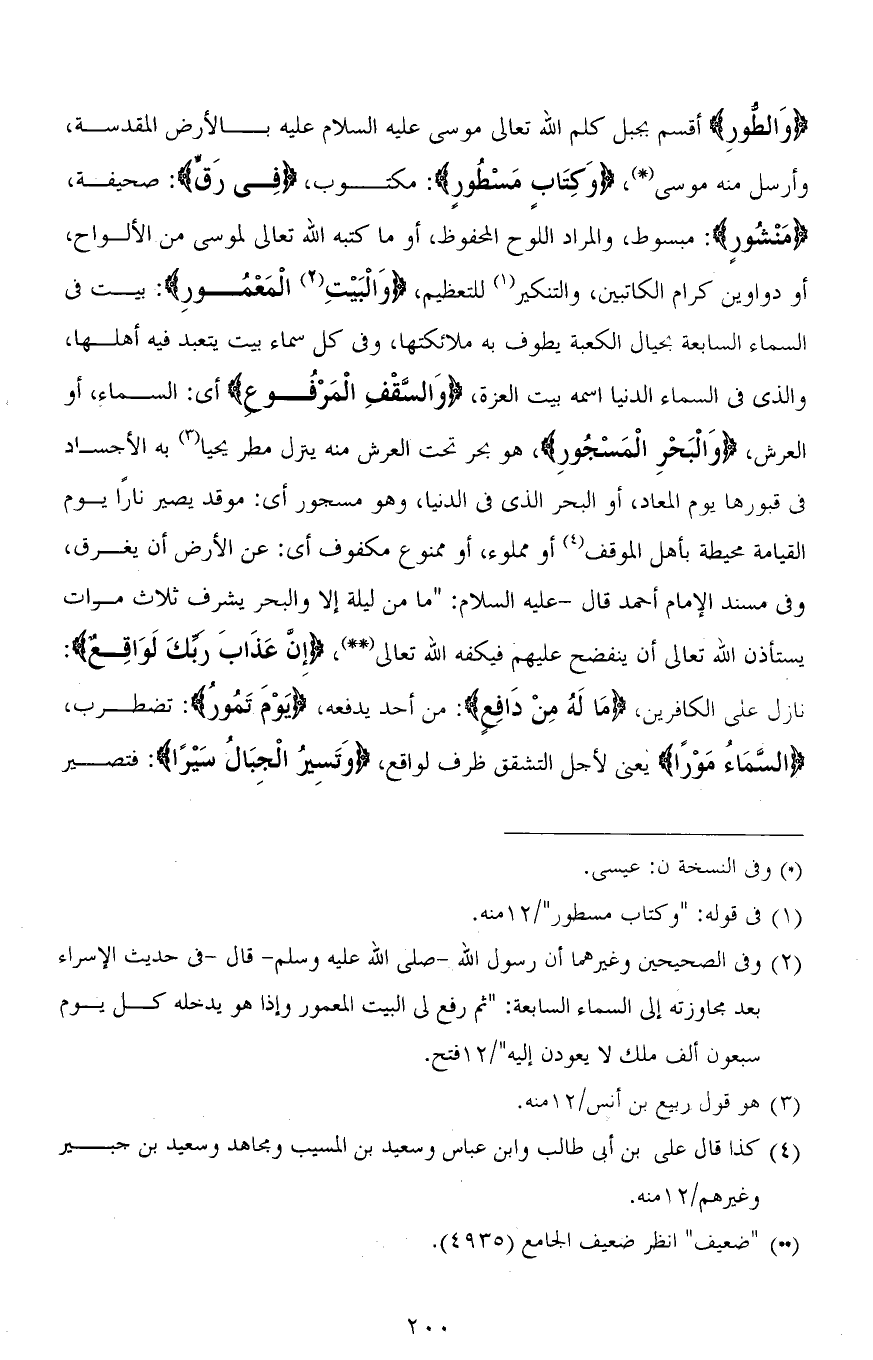 ﴿وَالطُّورِ﴾ أقسم بجبل كلم الله تعالى موسى عليه السلام عليه بالأرض المقدسة،
وأرسل منه موسى(*)، ﴿وَكِتَابٍ مَسْطُورٍ﴾: مكتوب، ﴿فِى رَقٍّ﴾: صحيفة،
﴿مَنْشُورٍ﴾: مبسوط، والمراد اللوح المحفوظ، أو ما كتبه الله تعالى لموسى من الألواح،
أو دواوين كرام الكاتبين، والتنكير(١) للتعظيم، ﴿وَالْبَيْتِ(٢) الْمَعْمُورِ﴾: بيت فى
السماء السابعة بحيال الكعبة يطوف به ملائكتها، وفى كل سماء بيت يتعبد فيه أهلها،
والذى فى السماء الدنيا اسمه بيت العزة، ﴿وَالسَّقْفِ الْمَرْفُوعِ﴾ أى: السماء، أو
العرش، ﴿وَالْبَحْرِ الْمَسْجُورِ﴾، هو بحر تحت العرش منه ينزل مطر يحيا(٣) به الأجساد
فى قبورها يوم المعاد، أو البحر الذى فى الدنيا، وهو مسجور أى: موقد يصير نارًا يوم
القيامة محيطة بأهل الموقف(٤) أو مملوء، أو ممنوع مكفوف أى: عن الأرض أن يغرق،
وفى مسند الإمام أحمد قال -عليه السلام: "ما من ليلة إلا والبحر يشرف ثلاث مرات
يستأذن الله تعالى أن ينفضح عليهم فيكفه الله تعالى(**)، ﴿إِنَّ عَذَابَ رَبِّكَ لَوَاقِعٌ﴾:
نازل على الكافرين، ﴿مَا لَهُ مِنْ دَافِعٍ﴾: من أحد يدفعه، ﴿يَوْمَ تَمُورُ﴾: تضطرب،
﴿السَّمَاءُ مَوْرًا﴾ يعنى لأجل التشقق ظرف لواقع، ﴿وَتَسِيرُ الْجِبَالُ سَيْرًا﴾: فتصير
(*) وفى النسخة ن: عيسى.
(١) فى قوله: "وكتاب مسطور"/١٢منه.
(٢) وفى الصحيحين وغيرهما أن رسول الله -صلى الله عليه وسلم- قال -فى حديث الإسراء
بعد مجاوزته إلى السماء السابعة: "ثم رفع لى البيت المعمور وإذا هو يدخله كل يوم
سبعون ألف ملك لا يعودن إليه"/١٢فتح.
(٣) هو قول ربيع بن أنس/١٢منه.
(٤) كذا قال على بن أبى طالب وابن عباس وسعيد بن المسيب ومجاهد وسعيد بن جبير
وغيرهم/١٢منه.
(**) "ضعيف" انظر ضعيف الجامع (٤٩٣٥).
٢٠٠